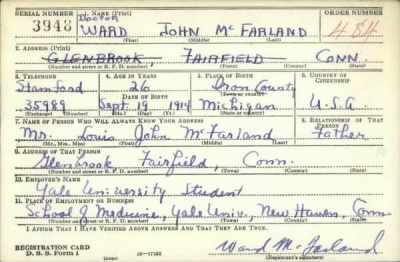 SERIAL NUMBER 1. NAME (Print) ORDER NUMBER
Doctor
3948 WARD JOHN McFARLAND 484
(First) (Middle) (Last)
2. ADDRESS (Print)
GLENBROOK, FAIRFIELD CONN.
(Number and street or R. F. D. number) (Town) (County) (State)
3. TELEPHONE 4. AGE IN YEARS 5. PLACE OF BIRTH 6. COUNTRY OF CITIZENSHIP
Stamford 26 Iron County
35989 Sept. 19 1914 Michigan U.S.A.
7. NAME OF PERSON WHO WILL ALWAYS KNOW YOUR ADDRESS 8. RELATIONSHIP OF THAT PERSON
Mr. Louis John McFarland Father
(Mr., Mrs., Miss) (First) (Middle) (Last)
9. ADDRESS OF THAT PERSON
Glenbrook Fairfield, Conn.
(Number and street or R. F. D. number) (Town) (County) (State)
10. EMPLOYER'S NAME
Yale University Student
11. PLACE OF EMPLOYMENT OR BUSINESS
School of Medicine, Yale Univ., New Haven, Conn
(Number and street or R. F. D. number) (Town) (County) (State)
I AFFIRM THAT I HAVE VERIFIED ABOVE ANSWERS AND THAT THEY ARE TRUE.
REGISTRATION CARD
D. S. S. Form 1 16—17105 Ward McFarland
(Registrant's signature)